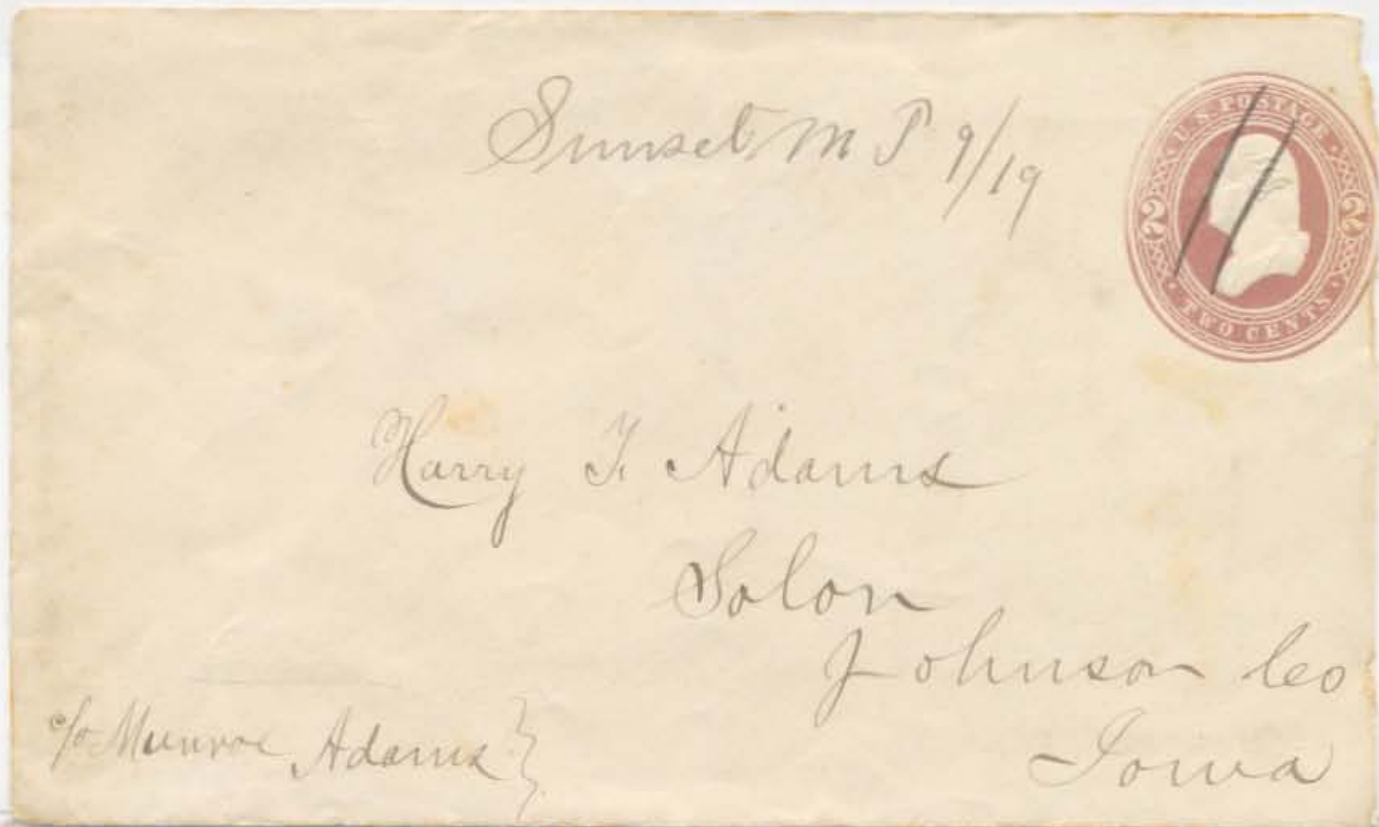 Sunset M T 9/19
U.S. POSTAGE
2 2
TWO CENTS
Harry F. Adams
Solon
Johnson Co
Iowa
c/o Munroe Adams